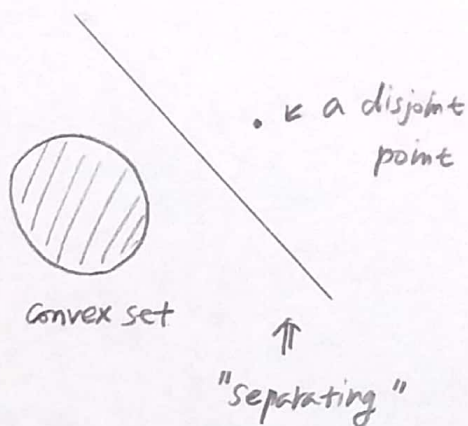 a disjoint
point
convex set
"separating"